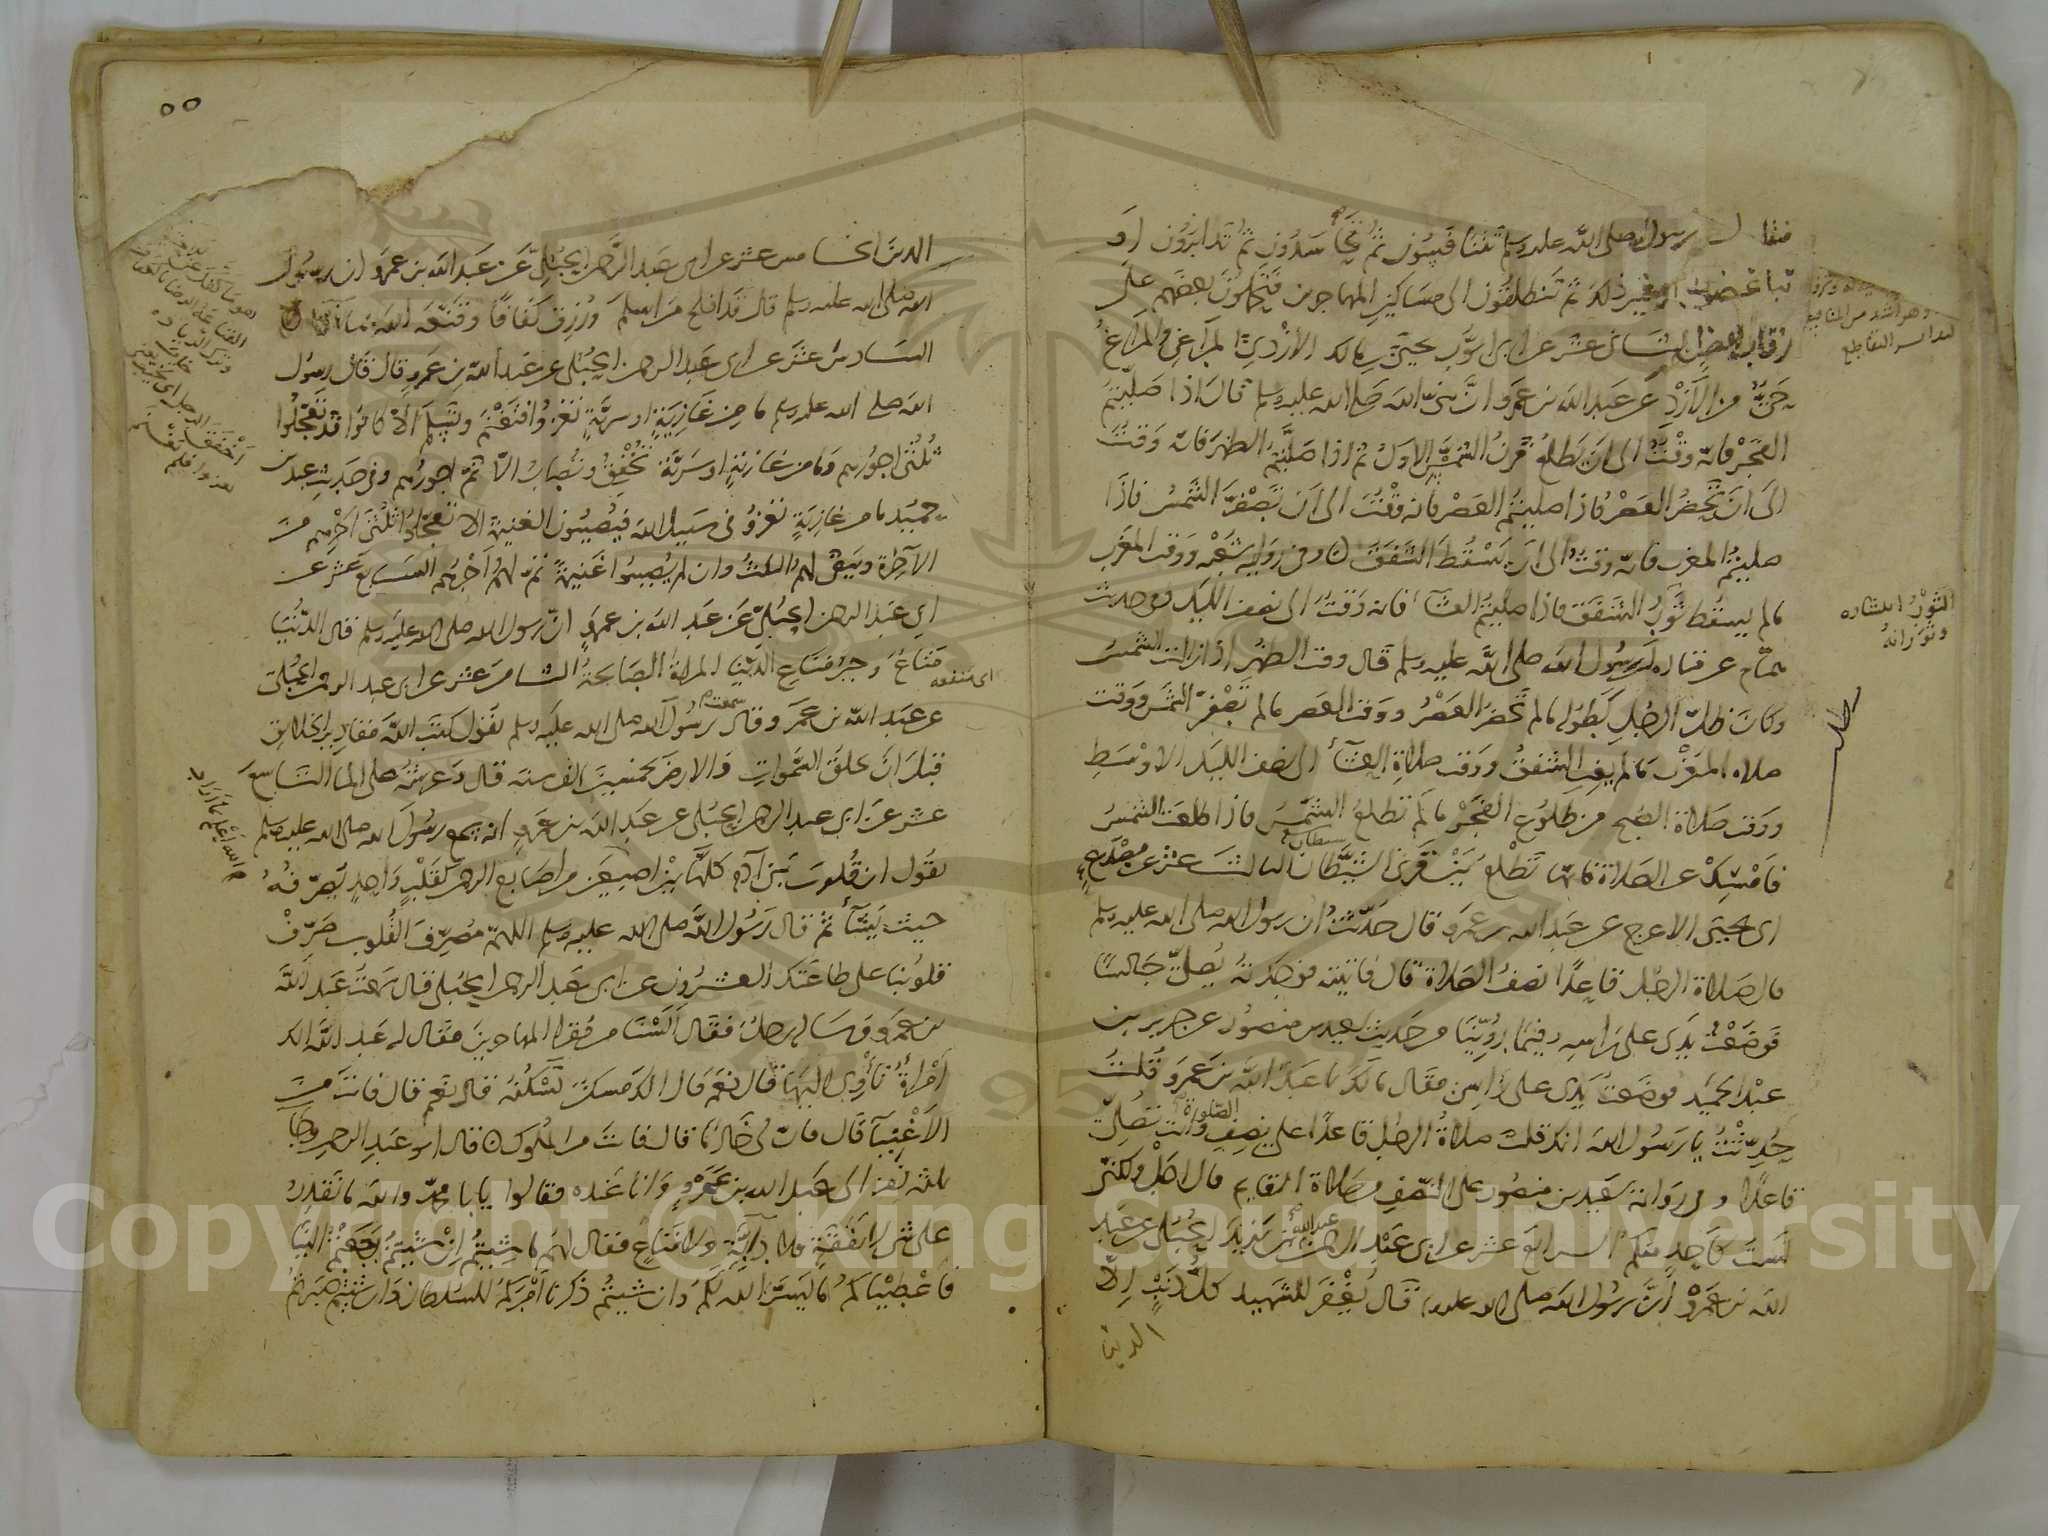 فقال رسول الله صلى الله عليه وسلم تتنافسون ثم تتحاسدون ثم تتدابرون او
تتباغضون او غير ذلك ثم تنطلقون الى مساكين المهاجرين فتحملون بعضهم على
رقاب بعض الثاني عشر عن ابي ايوب يحيى بن مالك الازدي المراغي والمراغ
حي من الازد عن عبد الله بن عمرو ان نبي الله صلى الله عليه وسلم قال اذا صليتم
الفجر فانه وقت الى ان يطلع قرن الشمس الاول ثم اذا صليتم الظهر فانه وقت
الى ان تحضر العصر فاذا صليتم العصر فانه وقت الى ان تصفر الشمس فاذا
صليتم المغرب فانه وقت الى ان يسقط الشفق وفي رواية شعبة ووقت المغرب
ما لم يسقط ثور الشفق فاذا صليتم العشاء فانه وقت الى نصف الليل وفي حديث
همام عن قتادة ان رسول الله صلى الله عليه وسلم قال وقت الظهر اذا زالت الشمس
وكان ظل الرجل كطوله ما لم تحضر العصر ووقت العصر ما لم تصفر الشمس ووقت
صلاة المغرب ما لم يغب الشفق ووقت صلاة العشاء الى نصف الليل الاوسط
ووقت صلاة الصبح من طلوع الفجر ما لم تطلع الشمس فاذا طلعت الشمس
فامسك عن الصلاة فانها تطلع بين قرني الشيطان الثالث عشر عن مصدع
ابي يحيى الاعرج عن عبد الله بن عمرو قال حدثت ان رسول الله صلى الله عليه وسلم
قال صلاة الرجل قاعدا نصف الصلاة قال فاتيته فوجدته يصلي جالسا
فوضعت يدي على راسه وفيما روينا من حديث سعيد بن منصور عن جرير بن
عبد الحميد فوضعت يدي على راسي فقال مالك يا عبد الله بن عمرو قلت
حدثت يا رسول الله انك قلت صلاة الرجل قاعدا على نصف الصلوة وانت تصلي
قاعدا وفي رواية سعيد بن منصور على النصف من صلاة القايم قال اجل ولكني
لست كاحد منكم الرابع عشر عن ابي عبد الرحمن عبد الله بن يزيد الحبلي عن عبد
الله بن عمرو ان رسول الله صلى الله عليه وسلم قال يغفر للشهيد كل ذنب الا
الدين
الثور انتشاره
وثورانه
٥٥
الدين الخامس عشر عن ابي عبد الرحمن الحبلي عن عبد الله بن عمرو ان رسول
الله صلى الله عليه وسلم قال قد افلح من اسلم ورزق كفافا وقنعه الله بما اتاه
السادس عشر عن ابي عبد الرحمن الحبلي عن عبد الله بن عمرو قال قال رسول
الله صلى الله عليه وسلم ما من غازية او سرية تغزوا فتغنم وتسلم الا كانوا قد تعجلوا
ثلثي اجورهم وما من غازية او سرية تخفق وتصاب الا تم اجورهم وفي حديث عبد بن
حميد ما من غازية تغزو في سبيل الله فيصيبون الغنيمة الا تعجلوا ثلثي اجرهم من
الآخرة ويبقى لهم الثلث وان لم يصيبوا غنيمة تم لهم اجرهم السابع عشر عن
ابي عبد الرحمن الحبلي عن عبد الله بن عمرو ان رسول الله صلى الله عليه وسلم قال الدنيا
متاع وخير متاع الدنيا المراة الصالحة الثامن عشر عن ابي عبد الرحمن الحبلي
عن عبد الله بن عمرو قال سمعت رسول الله صلى الله عليه وسلم يقول كتب الله مقادير الخلائق
قبل ان يخلق السموات والارض بخمسين الف سنة قال وعرشه على الماء التاسع
عشر عن ابي عبد الرحمن الحبلي عن عبد الله بن عمرو انه سمع رسول الله صلى الله عليه وسلم
يقول ان قلوب بني آدم كلها بين اصبعين من اصابع الرحمن كقلب واحد يصرفه
حيث يشاء ثم قال رسول الله صلى الله عليه وسلم اللهم مصرف القلوب صرف
قلوبنا على طاعتك العشرون عن ابي عبد الرحمن الحبلي قال سمعت عبد الله
بن عمرو وساله رجل فقال السنا من فقراء المهاجرين فقال له عبد الله الك
امراة تأوي اليها قال نعم قال الك مسكن تسكنه قال نعم قال فانت من
الاغنيآ قال فان لي خادما قال فانت من الملوك قال ابو عبد الرحمن وجا
ثلثة نفر الى عبد الله بن عمرو وانا عنده فقالوا يا با محمد والله ما نقدر
على شي لا نفقة ولا دابة ولا متاع فقال لهم ما شيتم ان شيتم رجعتم الينا
فاعطيناكم ما يسر الله لكم وان شيتم ذكرنا امركم للسلطان وان شيتم صبرتم
اي منفعة
والله اعلم بما اراد
Copyright © King Saud University